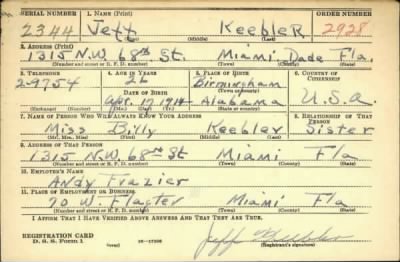 SERIAL NUMBER 1. NAME (Print) ORDER NUMBER
2344 Jeff Keebler 2928
(First) (Middle) (Last)
2. ADDRESS (Print)
1315 N.W. 68th St. Miami, Dade Fla.
(Number and street or R. F. D. number) (Town) (County) (State)
3. TELEPHONE 4. AGE IN YEARS 5. PLACE OF BIRTH 6. COUNTRY OF CITIZENSHIP
2-9754 26 Birmingham
DATE OF BIRTH (Town or county)
Apr. 17 1914 Alabama U.S.A.
(Exchange) (Number) (Mo.) (Day) (Yr.) (State or country)
7. NAME OF PERSON WHO WILL ALWAYS KNOW YOUR ADDRESS 8. RELATIONSHIP OF THAT PERSON
Miss Billy Keebler Sister
(Mr., Mrs., Miss) (First) (Middle) (Last)
9. ADDRESS OF THAT PERSON
1315 N.W 68th St Miami Fla
(Number and street or R. F. D. number) (Town) (County) (State)
10. EMPLOYER'S NAME
Andy Frazier
11. PLACE OF EMPLOYMENT OR BUSINESS
70 W. Flagler Miami Fla
(Number and street or R. F. D. number) (Town) (County) (State)
I AFFIRM THAT I HAVE VERIFIED ABOVE ANSWERS AND THAT THEY ARE TRUE.
REGISTRATION CARD
D. S. S. Form 1 16-17105 Jeff Keebler
(Registrant's signature)